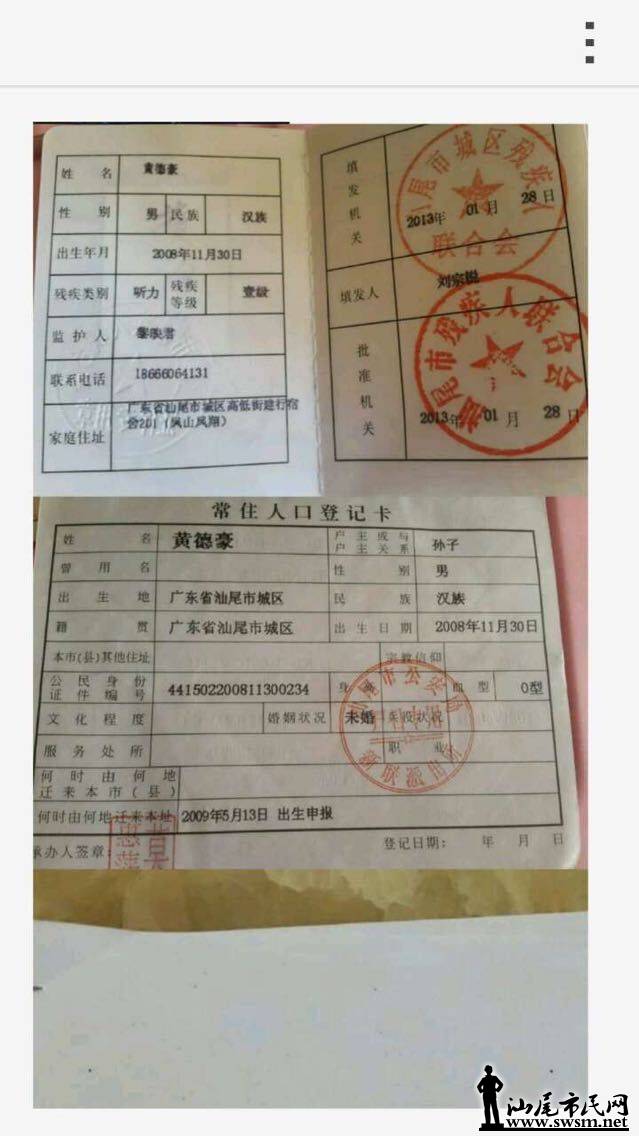 姓名 黄德豪
性别 男 民族 汉族
出生年月 2008年11月30日
残疾类别 听力 残疾等级 壹级
监护人
联系电话 18666064131
家庭住址 广东省汕尾市城区高低街建行宿
舍201(凤山凤翔)
填发机关
汕尾市城区残疾人
联合会
2013年 01月 28日
填发人 刘宗锐
批准机关
汕尾市残疾人联合会
2013年 01月 28日
常住人口登记卡
姓名 黄德豪 户主或与户主关系 孙子
曾用名 性别 男
出生地 广东省汕尾市城区 民族 汉族
籍贯 广东省汕尾市城区 出生日期 2008年11月30日
本市(县)其他住址 宗教信仰
公民身份证件编号 441502200811300234 身高 血型 O型
文化程度 婚姻状况 未婚 兵役状况
服务处所 职业
何时由何地迁来本市(县)
何时由何地迁来本址 2009年5月13日 出生申报
承办人签章: 登记日期: 年 月 日
汕尾市民网
www.swsm.net